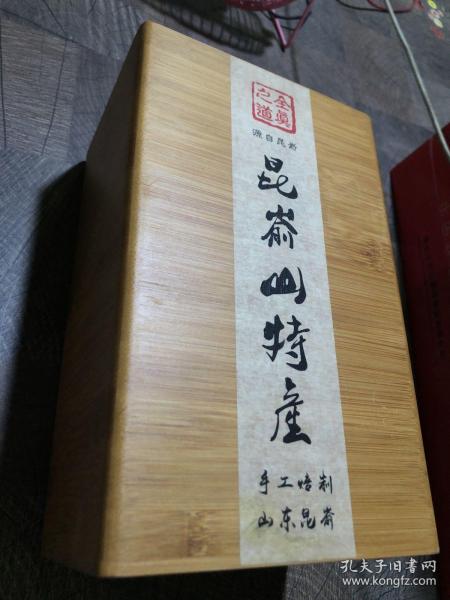 全真
之道
源自昆嵛
昆嵛山特産
手工焙制
山东昆嵛
孔夫子旧书网
www.kongfz.com